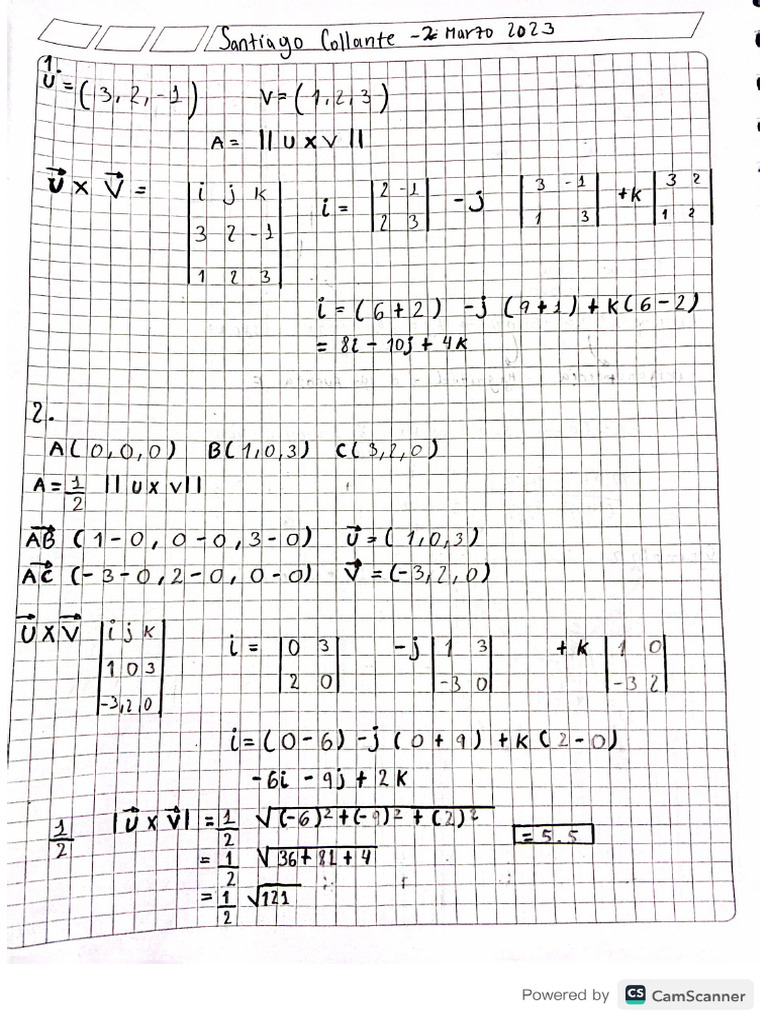 Santiago Collante - 2 Marzo 2023
1.
U = (3, 2, -1) V = (1, 2, 3)
A = || U X V ||
U⃗ X V⃗ = | i j k | i = | 2 -1 | - j | 3 -1 | + k | 3 2 |
| 3 2 -1 | | 2 3 | | 1 3 | | 1 2 |
| 1 2 3 |
i = (6 + 2) - j (9 + 1) + k (6 - 2)
= 8i - 10j + 4k
2.
A(0, 0, 0) B(1, 0, 3) C(3, 2, 0)
A = 1/2 || U X V ||
AB⃗ (1 - 0, 0 - 0, 3 - 0) U⃗ = (1, 0, 3)
AC⃗ (-3 - 0, 2 - 0, 0 - 0) V⃗ = (-3, 2, 0)
U⃗ X V⃗ | i j k | i = | 0 3 | - j | 1 3 | + k | 1 0 |
| 1 0 3 | | 2 0 | | -3 0 | | -3 2 |
| -3, 2, 0 |
i = (0 - 6) - j (0 + 9) + k (2 - 0)
-6i - 9j + 2k
1/2 | U⃗ X V⃗ | = 1/2 √(-6)² + (-9)² + (2)² = 5.5
= 1/2 √36 + 81 + 4
= 1/2 √121
Powered by CS CamScanner